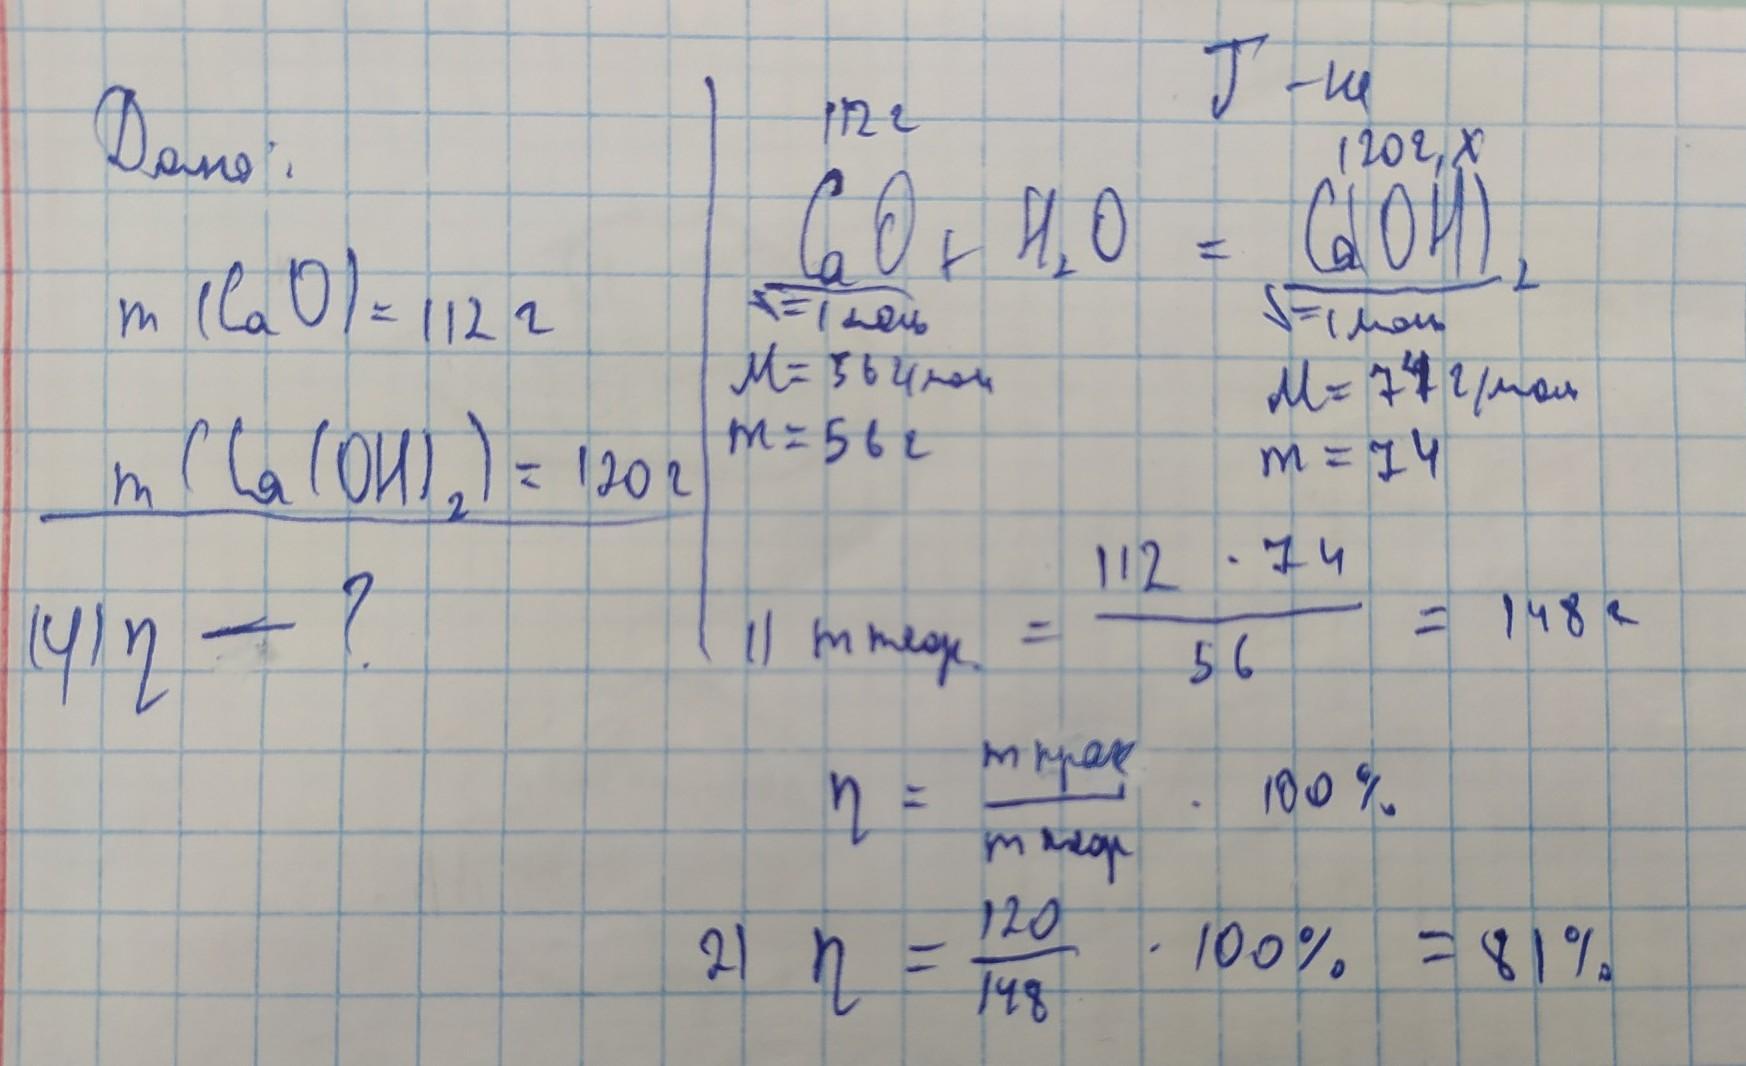 Дано:
m (CaO) = 112 г
m (Ca(OH)2) = 120 г
(ч) η — ?
Т-ща
112 г
120 г, x
CaO + H2O = Ca(OH)2
ν = 1 моль
ν = 1 моль
M = 56 г/моль
M = 74 г/моль
m = 56 г
m = 74
1) m теор. = 112 · 74 / 56 = 148 г
η = m прак / m теор · 100 %
2) η = 120 / 148 · 100% = 81%